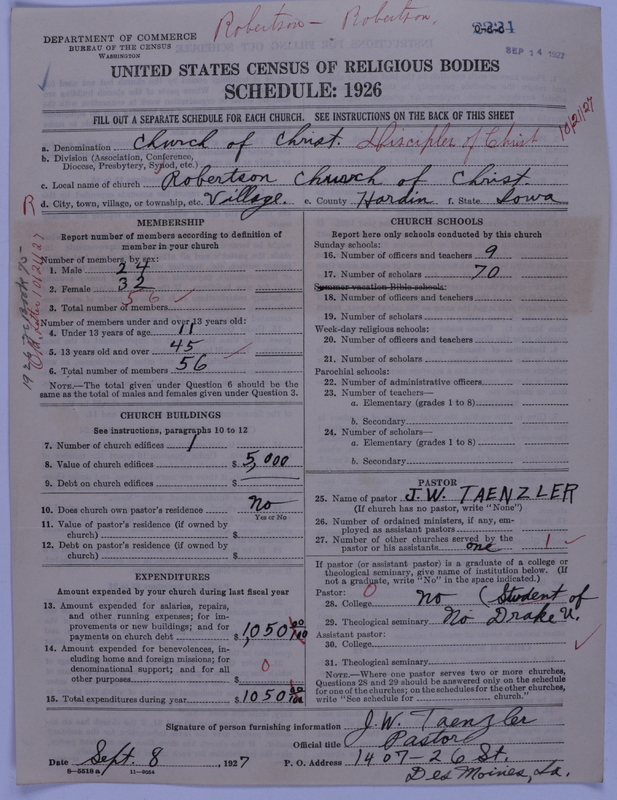 Robertson - Robertson.
DEPARTMENT OF COMMERCE
BUREAU OF THE CENSUS
WASHINGTON
SEP 14 1927
UNITED STATES CENSUS OF RELIGIOUS BODIES
SCHEDULE: 1926
FILL OUT A SEPARATE SCHEDULE FOR EACH CHURCH. SEE INSTRUCTIONS ON THE BACK OF THIS SHEET
10/21/27
a. Denomination Church of Christ. Disciples of Christ
b. Division (Association, Conference, Diocese, Presbytery, Synod, etc.)
c. Local name of church Robertson Church of Christ.
R
d. City, town, village, or township, etc. Village. e. County Hardin f. State Iowa
MEMBERSHIP
Report number of members according to definition of
member in your church
Number of members, by sex:
1. Male 24
2. Female 32
3. Total number of members 56
Number of members under and over 13 years old:
4. Under 13 years of age 11
5. 13 years old and over 45
6. Total number of members 56
NOTE.—The total given under Question 6 should be
the same as the total of males and females given under Question 3.
CHURCH BUILDINGS
See instructions, paragraphs 10 to 12
7. Number of church edifices 1
8. Value of church edifices $ 5,000
9. Debt on church edifices $
10. Does church own pastor's residence No
Yes or No
11. Value of pastor's residence (if owned by
church) $
12. Debt on pastor's residence (if owned by
church) $
EXPENDITURES
Amount expended by your church during last fiscal year
13. Amount expended for salaries, repairs,
and other running expenses; for im-
provements or new buildings; and for
payments on church debt $ 1,050 00
14. Amount expended for benevolences, in-
cluding home and foreign missions; for
denominational support; and for all
other purposes $ 0
15. Total expenditures during year $ 1050 00
CHURCH SCHOOLS
Report here only schools conducted by this church
Sunday schools:
16. Number of officers and teachers 9
17. Number of scholars 70
Summer vacation Bible schools:
18. Number of officers and teachers
19. Number of scholars
Week-day religious schools:
20. Number of officers and teachers
21. Number of scholars
Parochial schools:
22. Number of administrative officers
23. Number of teachers—
a. Elementary (grades 1 to 8)
b. Secondary
24. Number of scholars—
a. Elementary (grades 1 to 8)
b. Secondary
PASTOR
25. Name of pastor J. W. TAENZLER
(If church has no pastor, write "None")
26. Number of ordained ministers, if any, em-
ployed as assistant pastors
27. Number of other churches served by the
pastor or his assistants one 1
If pastor (or assistant pastor) is a graduate of a college or
theological seminary, give name of institution below. (If
not a graduate, write "No" in the space indicated.)
Pastor: 0
28. College No (Student of
29. Theological seminary No Drake U.
Assistant pastor:
30. College
31. Theological seminary
NOTE.—Where one pastor serves two or more churches,
Questions 28 and 29 should be answered only on the schedule
for one of the churches; on the schedules for the other churches,
write "See schedule for church."
Signature of person furnishing information J. W. Taenzler
Official title Pastor
Date Sept. 8, 1927 P. O. Address 1407-26 St.
8-5518 a 11-9024
Des Moines, Ia.